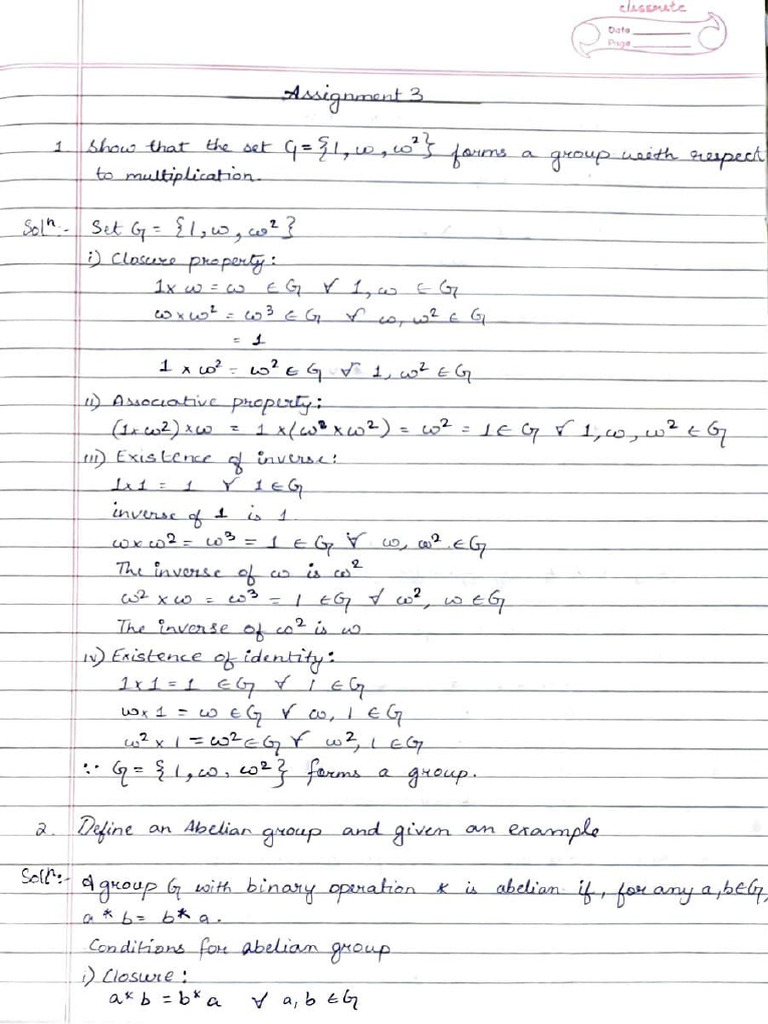 classmate
Date
Page
Assignment 3
1 Show that the set G = {1, ω, ω²} forms a group with respect
to multiplication.
Solⁿ:- Set G = {1, ω, ω²}
i) Closure property:
1 × ω = ω ∈ G ∀ 1, ω ∈ G
ω × ω² = ω³ ∈ G ∀ ω, ω² ∈ G
= 1
1 × ω² = ω² ∈ G ∀ 1, ω² ∈ G
ii) Associative property:
(1 × ω²) × ω = 1 × (ω² × ω²) = ω² = 1 ∈ G ∀ 1, ω, ω² ∈ G
iii) Existence of inverse:
1 × 1 = 1 ∀ 1 ∈ G
inverse of 1 is 1.
ω × ω² = ω³ = 1 ∈ G ∀ ω, ω² ∈ G
The inverse of ω is ω²
ω² × ω = ω³ = 1 ∈ G ∀ ω², ω ∈ G
The inverse of ω² is ω
iv) Existence of identity:
1 × 1 = 1 ∈ G ∀ 1 ∈ G
ω × 1 = ω ∈ G ∀ ω, 1 ∈ G
ω² × 1 = ω² ∈ G ∀ ω², 1 ∈ G
∵ G = {1, ω, ω²} forms a group.
2. Define an Abelian group and given an example
Solⁿ:- A group G with binary operation * is abelian if, for any a, b ∈ G,
a * b = b * a.
Conditions for abelian group
i) Closure:
a * b = b * a ∀ a, b ∈ G